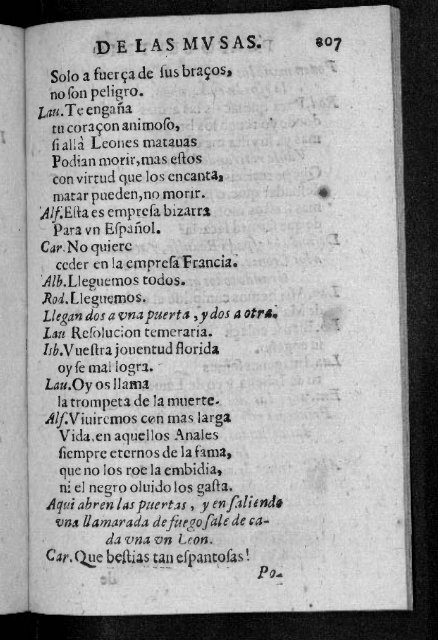 DE LAS MVSAS. 807
Solo a fuerça de sus braços,
no son peligro.
Lau. Te engaña
tu coraçon animoso,
si allà Leones matauas
Podian morir, mas estos
con virtud que los encanta,
matar pueden, no morir.
Alf. Esta es empresa bizarra
Para vn Español.
Car. No quiere
ceder en la empresa Francia.
Alb. Lleguemos todos.
Rod. Lleguemos.
Llegan dos a vna puerta, y dos a otra.
Lau Resolucion temeraria.
Isb. Vuestra jouentud florida
oy se mal logra.
Lau. Oy os llama
la trompeta de la muerte.
Alf. Viuiremos con mas larga
Vida, en aquellos Anales
siempre eternos de la fama,
que no los roe la embidia,
ni el negro oluido los gasta.
Aqui abren las puertas, y en saliendo
vna llamarada de fuego sale de ca-
da vna vn Leon.
Car. Que bestias tan espantosas!
Po-